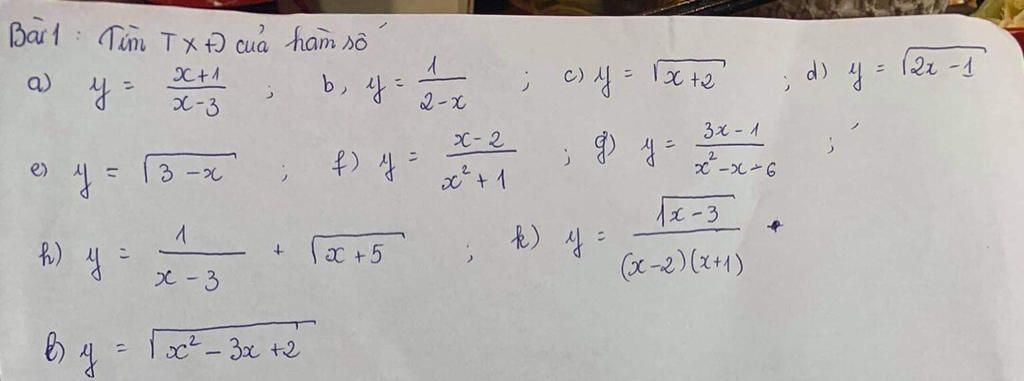 Bài 1 : Tìm TXĐ của hàm số
a) y = (x+1)/(x-3) ; b, y = 1/(2-x) ; c) y = √(x+2) ; d) y = √(2x-1)
e) y = √(3-x) ; f) y = (x-2)/(x²+1) ; g) y = (3x-1)/(x²-x-6) ;
h) y = 1/(x-3) + √(x+5) ; k) y = √(x-3)/((x-2)(x+1))
l) y = √(x²-3x+2)